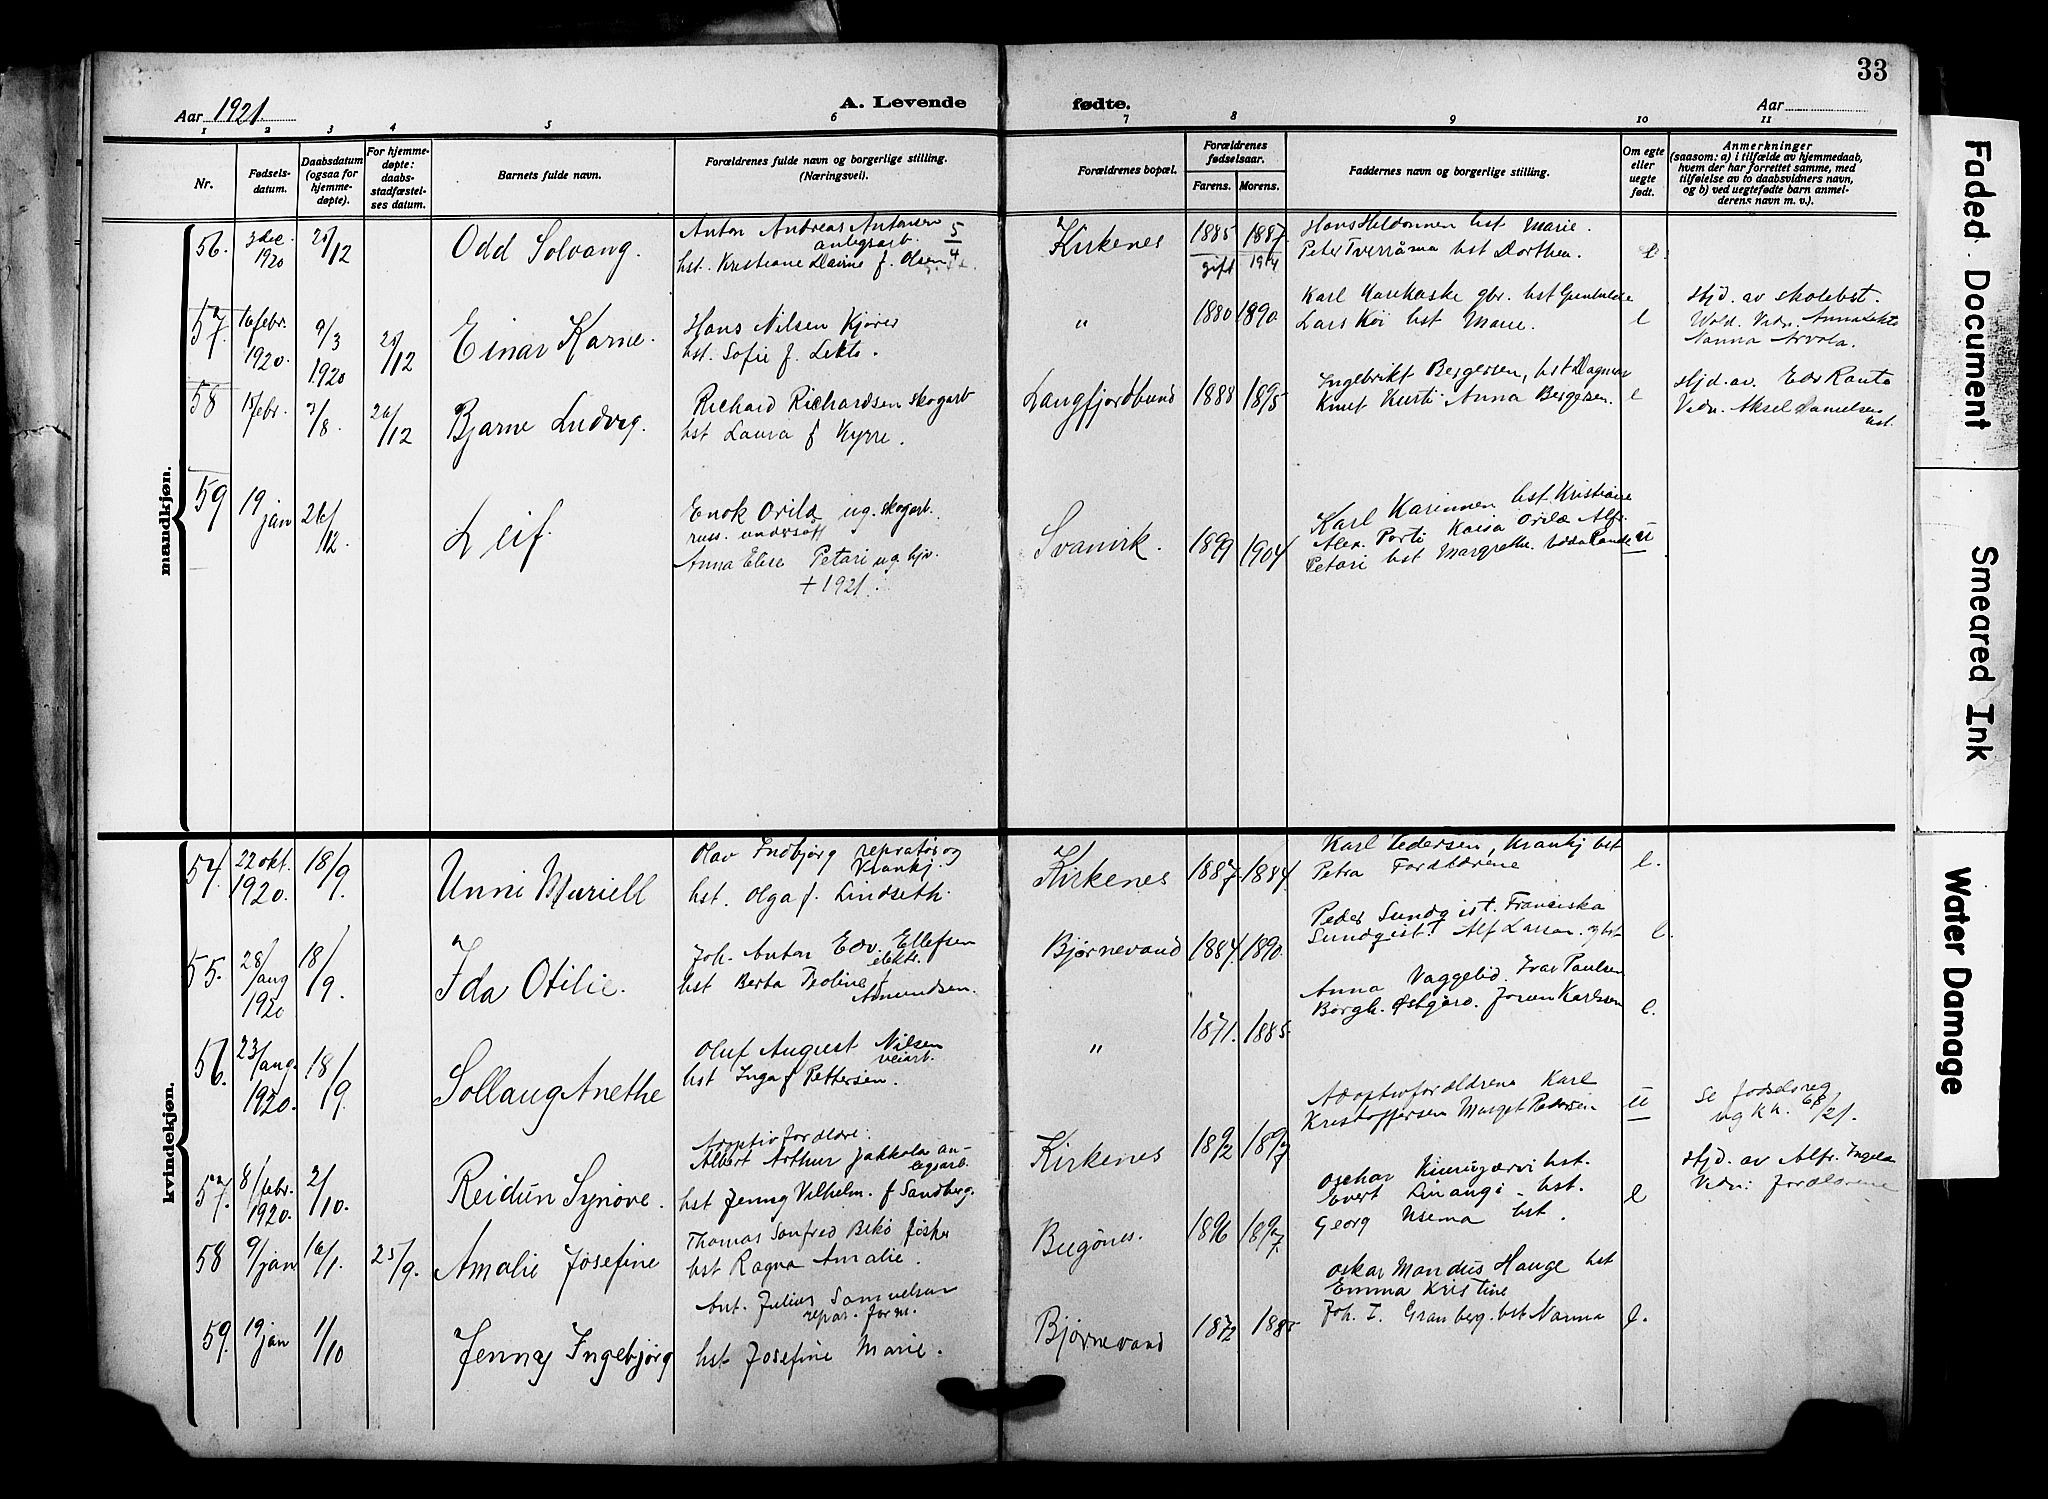 33
Aar 1921.
A. Levende
fødte.
Aar
1 2 3 4 5 6 7 8 9 10 11
Nr.
Fødsels-
datum.
Daabsdatum
(ogsaa for
hjemme-
døpte).
For hjemme-
døpte:
daabs-
stadfæstel-
ses datum.
Barnets fulde navn.
Forældrenes fulde navn og borgerlige stilling.
(Næringsvei).
Forældrenes bopæl.
Forældrenes
fødselsaar.
Farens. Morens.
Faddernes navn og borgerlige stilling.
Om egte
eller
uegte
født.
Anmerkninger
(saasom: a) i tilfælde av hjemmedaab,
hvem der har forrettet samme, med
tilføielse av to daabsvidners navn,
og b) ved uegtefødte barn anmel-
derens navn m. v.).
mandkjøn.
56.
3 dec.
1920
Odd Solvang.
Anton Andreas Antonsen
5/4
hst. Kristiane f. Olsen
Kirkenes
1885 1887
gift 1914
hst Marie.
Peter hst Dorthea.
e
57
16 febr.
1920.
9/3
1920
Einar Karne.
Hans Nilsen
hst. Sofie f.
"
1880 1890
Karl gbr. hst
Lars hst Marie.
e
Hjd. av skolebst.
Wold. Vidn. Anna
Nanna Arvola.
58
15 febr.
26/12
Bjarne Ludvig.
Richard Richardsen skogarb
hst Laura f Kyrre.
Langfjordbund
1888 1895
Ingebrikt Bergersen, hst Dagmar
Knut Anna Bergersen.
e
Hjd. av. Edv Ranta
Vidn. Aksel Danielsen
hst.
59
19
jan
26/12.
Leif.
Enok ug. skogarb.
russ. undersått
Anna Elise Petari ug. hjv.
+ 1921.
Svanvik.
1899 1904
Karl hst Kristiane
Alex.
Petari hst Margrethe.
u
kvindekjøn.
54.
22 okt.
1920.
18/9.
Unni Muriell
Olav
hst. Olga f. Lindseth.
Kirkenes
1887 1884
Karl Pedersen, hst
Petra Forældrene
e.
55.
28/aug
1920
18/9.
Ida Otilie.
Joh. Anton Edv. Ellefsen
elektr.
hst Berta f
Amundsen.
Bjørnevand
1884. 1890.
Peder Sundqist. Franciska
Sundqist. Alf Larsen. hst
e.
56.
23/aug
1920.
18/9.
Sollaug Anethe
Oluf August Nilsen
veiarb.
hst Inga f Pettersen.
"
1871. 1885.
Anna Ivar Paulsen
Borgh. Karlsen
e.
57.
8/febr.
1920.
2/10.
Reidun Synøve.
Adoptivforældre.
Albert Arthur Jakkola an-
legsarb.
hst Jenny Vilhelm. f Sandberg.
Kirkenes
1892 1897
Adoptivforældrene Karl
Kristoffersen Margit Pedersen
u
Se fødselsreg
ug kk. 68/21.
58
9/jan
16/1.
25/9.
Amalie Josefine
Thomas Sanfred Bekö fisker
hst Ragna Amalie.
Bugønes.
1896 1897.
Oskar hst.
Evert hst.
Georg hst.
e
Hjd. av Alfr. Ingela
Vidn: forældrene
59.
19
jan
1/10
Jenny Ingebjørg
Ant. Julius Samuelsen
repar. form.
hst Josefine Marie.
Bjørnevand
1872 1885
Oskar Mandus Hauge hst
Emma Kristine
Joh. I. Granberg. hst Nanna
e.
Faded Document
Smeared Ink
Water Damage